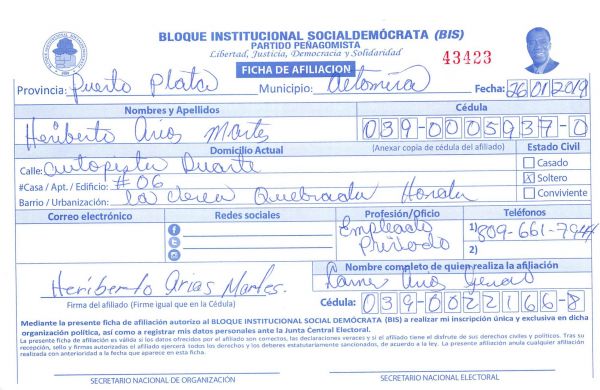 BLOQUE INSTITUCIONAL SOCIALDEMÓCRATA (BIS)
PARTIDO PEÑAGOMISTA
Libertad, Justicia, Democracia y Solidaridad
43423
FICHA DE AFILIACION
Provincia: Puerto Plata Municipio: Altamira Fecha: 26/01/2019
Nombres y Apellidos Cédula
Heriberto Arias Martes 039-0005937-0
Domicilio Actual (Anexar copia de cédula del afiliado) Estado Civil
Calle: Autopista Duarte Casado
#Casa / Apt. / Edificio: #06 X Soltero
Barrio / Urbanización: Quebrada Honda Conviviente
Correo electrónico Redes sociales Profesión/Oficio Teléfonos
Empleado Privado 1) 809-661-7944
2)
Nombre completo de quien realiza la afiliación
Heriberto Arias Martes. Arias
Firma del afiliado (Firme igual que en la Cédula) Cédula: 039-0022166-8
Mediante la presente ficha de afiliación autorizo al BLOQUE INSTITUCIONAL SOCIAL DEMÓCRATA (BIS) a realizar mi inscripción única y exclusiva en dicha
organización política, así como a registrar mis datos personales ante la Junta Central Electoral.
La presente ficha de afiliación es válida si los datos ofrecidos por el afiliado son correctos, las declaraciones veraces y si el afiliado tiene el disfrute de sus derechos civiles y políticos. Tras su
recepción, sello y firmas autorizadas el afiliado ejercerá todos los derechos y los deberes estatutariamente sancionados, de acuerdo a la ley. La presente afiliación anula cualquier afiliación
realizada con anterioridad a la fecha que aparece en esta ficha.
SECRETARIO NACIONAL DE ORGANIZACIÓN SECRETARIO NACIONAL ELECTORAL